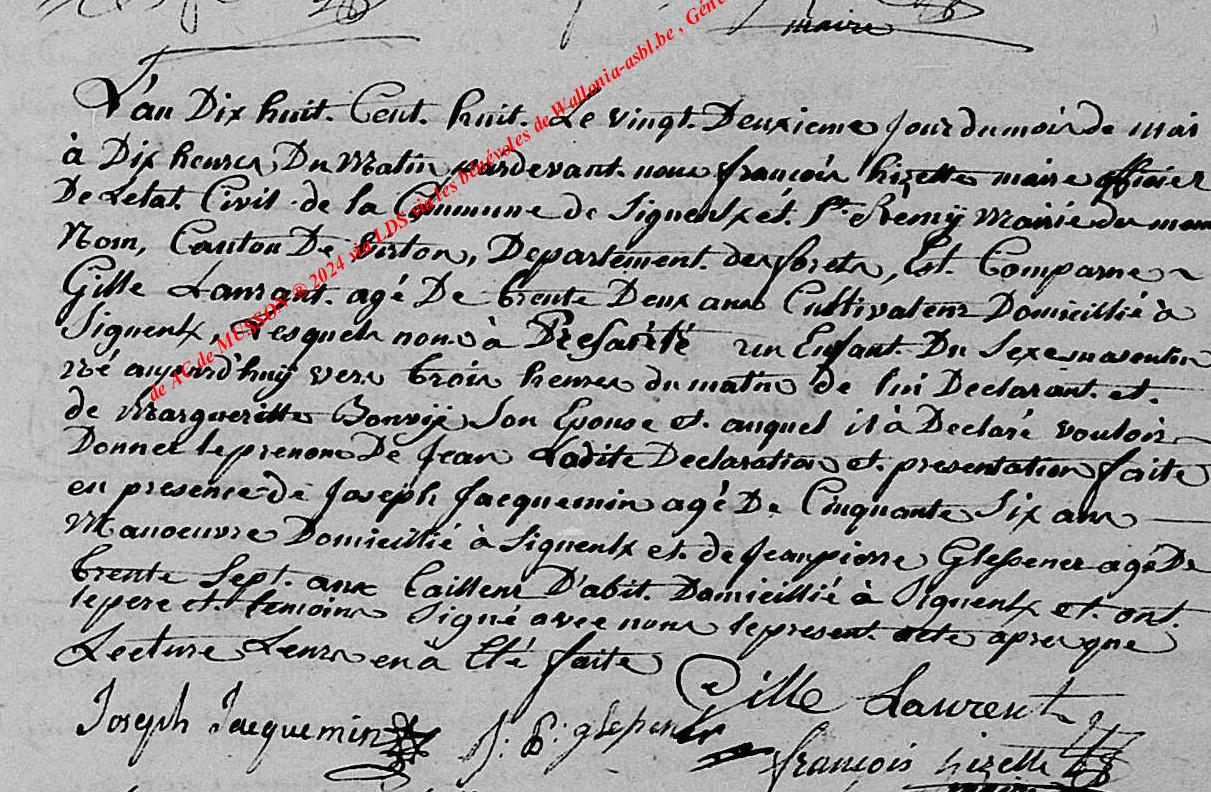 maire
L'an Dix huit Cent huit Le vingt Deuxieme jour du mois de mai
à Dix heures Du Matin pardevant nous françois hizette maire officier
De Letat Civil de la Commune de Signeulx et St Remÿ Mairié du mem
Nom, Canton De Virton, Departement des forets, Est Comparue
Gille Laurant agé De trente Deux ans Cultivateur Domicillié à
Signeulx, Lesquels nous à Presanté un Enfant Du Sexe masculin
né aujourd'huÿ vers trois heures du matin de lui Declarant et
de Margueritte Bonvÿ Son Epouse et auquel il à Declaré vouloir
Donner le prenom De Jean Ladite Declaration et presentation faite
en presence de Joseph Jacquemin agé De Cinquante Six ans
Manoeuvre Domicillié à Signeulx et de Jean pierre Glessener agé De
trente Sept ans tailleur D'abit Domicillié à Signeulx et ont
le pere et temoins Signé avec nous le present acte apres que
Lecture Leurs en à Eté faite
Gille Laurent
Joseph Jacquemin J. P. glesener
françois hizette
maire
de AC de MUSSON ® 2024 via LDS via les bénévoles de Wallonia-asbl.be , Géné